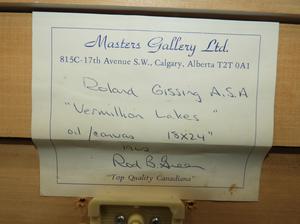 Masters Gallery Ltd.
815C-17th Avenue S.W., Calgary, Alberta T2T 0A1
Roland Gissing A.S.A
"Vermillion Lakes"
oil/canvas 18x24"
Rod B. Green
"Top Quality Canadiana"